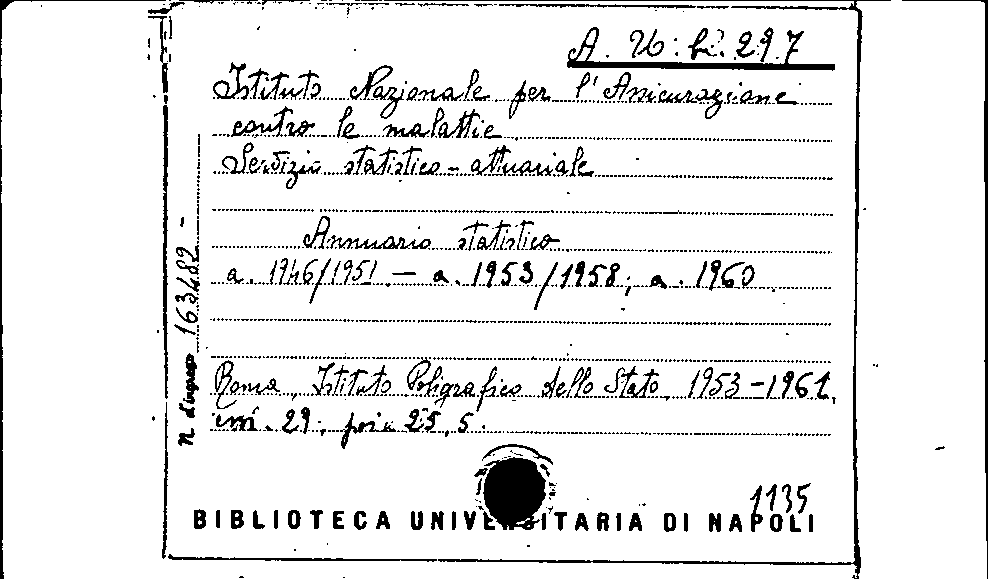 A. Ub. 297
Istituto Nazionale per l'Assicurazione
contro le malattie
Servizio statistico - attuariale
Annuario statistico
a. 1946/1951 - a. 1953/1958; a. 1960
Roma, Istituto Poligrafico dello Stato, 1953-1961.
cm. 29; poi 25,5.
N. d'ingresso 163482 -
1135
BIBLIOTECA UNIVERSITARIA DI NAPOLI